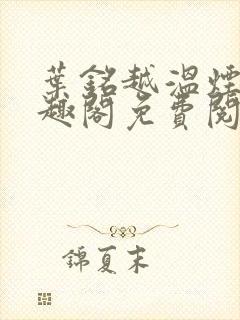 葉銘越溫煙
趣閣免費閱
錦夏末